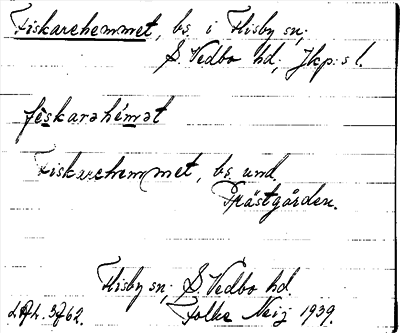 Fiskarehemmet, bs. i Flisby sn;
S. Vedbo hd; Jkp:s l.
fìskarahémat
Fiskarehemmet, bs. und.
Prästgården.
Flisby sn; S. Vedbo hd
Folke Neij 1939.